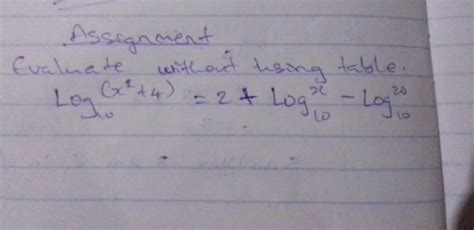 Assignment
Evaluate without using table.
Log₁₀(x²+4) = 2 + Log₁₀x - Log₁₀20